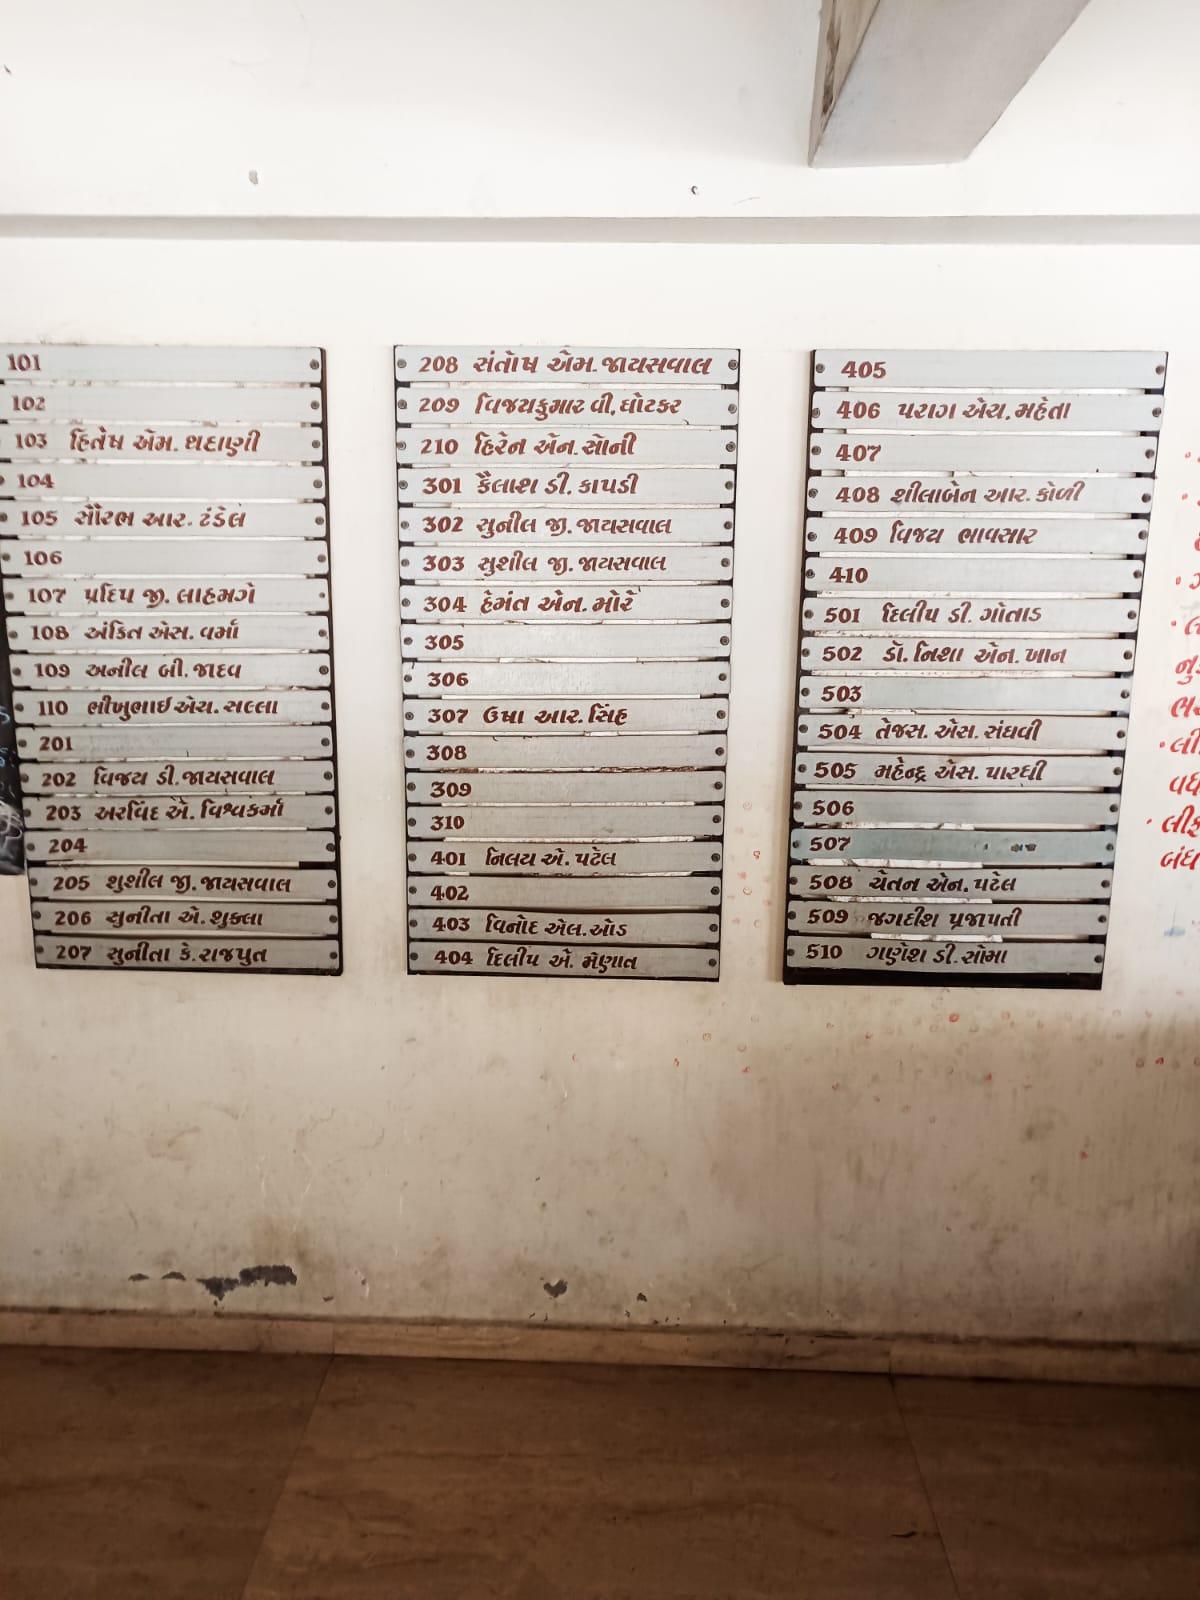 101
102
103 હિતેષ એમ. થદાણી
104
105 સૌરભ આર. ટંડેલ
106
107 પ્રદિપ જી. લાહમગે
108 અંકિત એસ. વર્મા
109 અનીલ બી. જાદવ
110 ભીખુભાઈ એચ. સલ્લા
201
202 વિજય ડી. જાયસવાલ
203 અરવિંદ એ. વિશ્વકર્મા
204
205 શુશીલ જી. જાયસવાલ
206 સુનીતા એ. શુક્લા
207 સુનીતા કે. રાજપુત
208 સંતોષ એમ. જાયસવાલ
209 વિજયકુમાર વી. ઘોટકર
210 હિરેન એન. સોની
301 કૈલાશ ડી. કાપડી
302 સુનીલ જી. જાયસવાલ
303 સુશીલ જી. જાયસવાલ
304 હેમંત એન. મોરે
305
306
307 ઉષા આર. સિંહ
308
309
310
401 નિલય એ. પટેલ
402
403 વિનોદ એલ. ઓડ
404 દિલીપ એ. મેણાત
405
406 પરાગ એચ. મહેતા
407
408 શીલાબેન આર. કોળી
409 વિજય ભાવસાર
410
501 દિલીપ ડી. ગોતાડ
502 ડૉ. નિશા એન. ખાન
503
504 તેજસ. એસ. સંઘવી
505 મહેન્દ્ર એસ. પારધી
506
507
508 ચેતન એન. પટેલ
509 જગદીશ પ્રજાપતી
510 ગણેશ ડી. સોમા